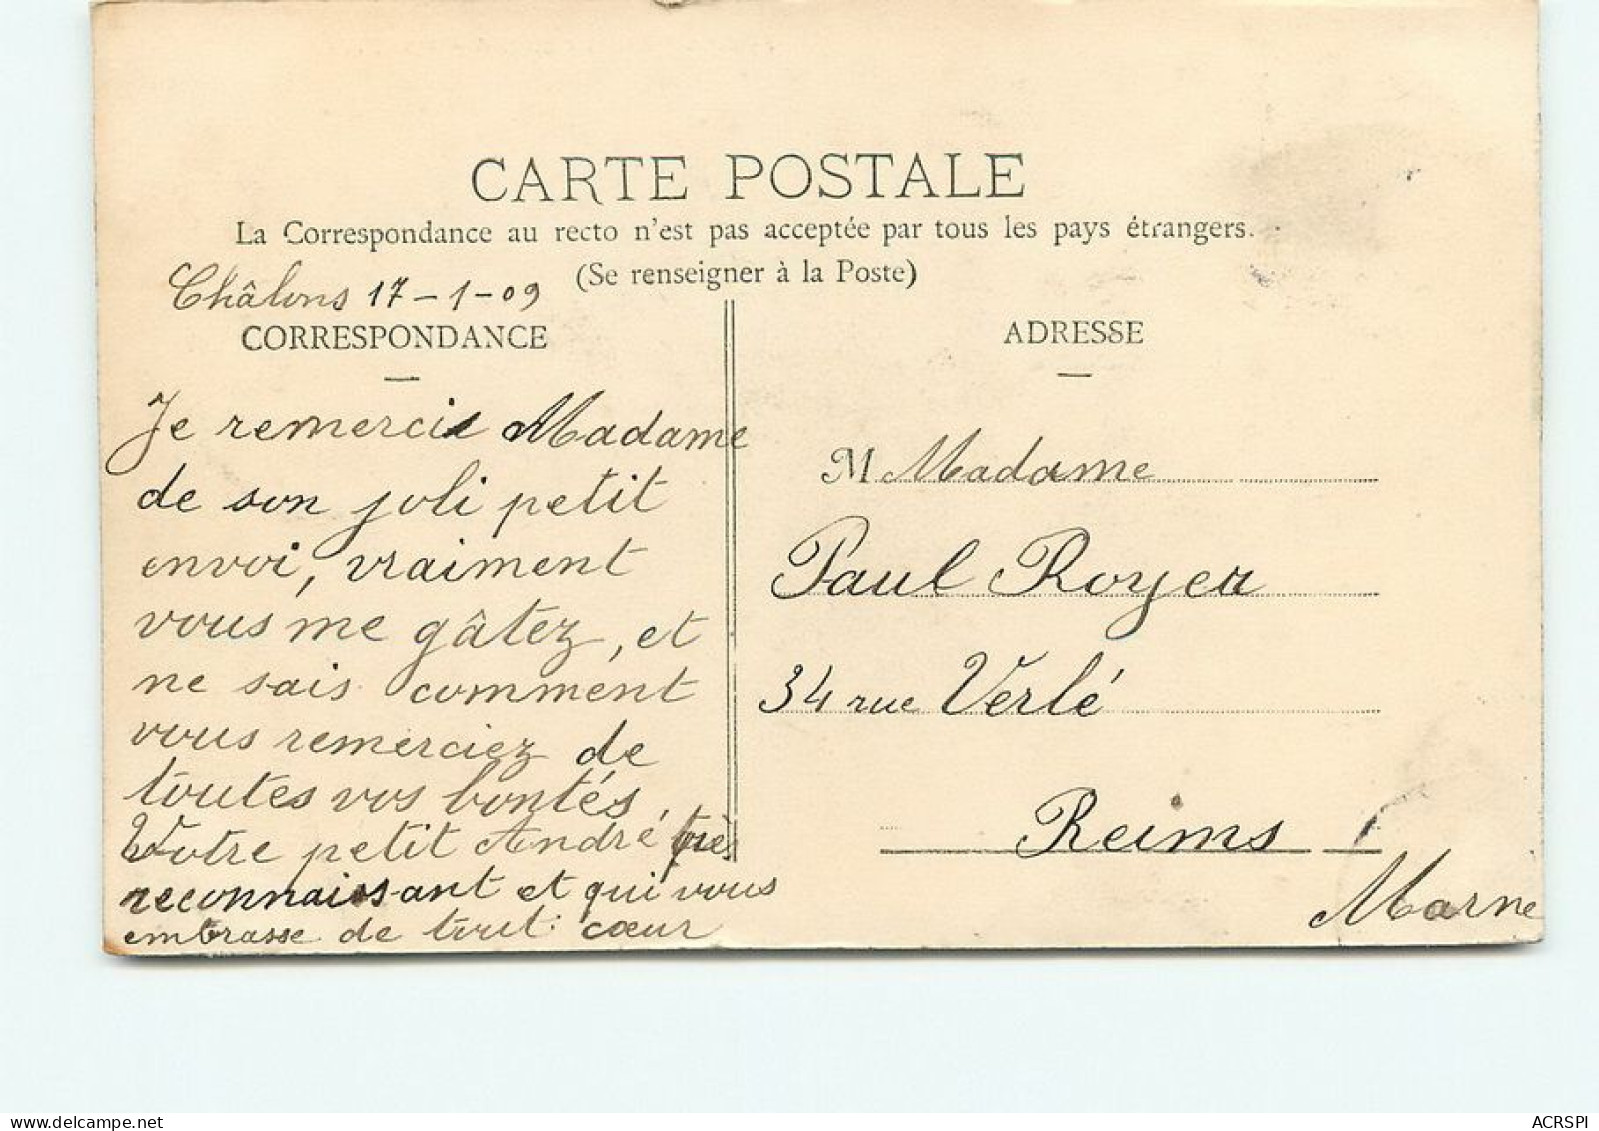 CARTE POSTALE
La Correspondance au recto n'est pas acceptée par tous les pays étrangers.
(Se renseigner à la Poste)
Châlons 17-1-09
CORRESPONDANCE
Je remercie Madame
de son joli petit
envoi, vraiment
vous me gâtez, et
ne sais comment
vous remerciez de
toutes vos bontés.
Votre petit André très
reconnaissant et qui vous
embrasse de tout cœur
ADRESSE
M Madame
Paul Royer
34 rue Verlé
Reims
Marne
ACRSPI